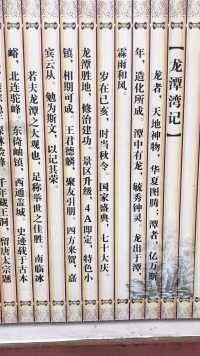 【龙潭湾记】
龙者，天地神物，华夏图腾；潭者，亿万斯
年，造化所成。潭中有龙，毓秀钟灵，龙出于潭，
霖雨和风。
岁在己亥，时当秋令，国家盛典，七十大庆，
龙潭胜地，修治建功。景区升级，4A即定，特色小
镇，相期可成。王君德麟，聚友引朋，四方来贺，嘉
宾云从，勉为斯文，以记其荣。
若夫龙潭之大观也，足称举世之佳胜。南临冰
峪，北连驼峰，东倚岫镇，西通盖城，史迹载于古本
千年藏王洞，留唐太宗题